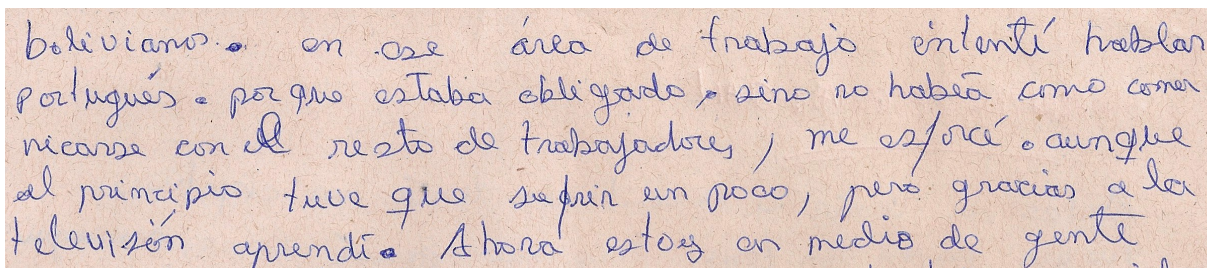 bolivianos. en ese área de trabajo intenté hablar
portugués. porque estaba obligado, sino no había como comu
nicarse con el resto de trabajadores, me esforcé. aunque
al principio tuve que sufrir un poco, pero gracias a la
televisión aprendí. Ahora estoy en medio de gente